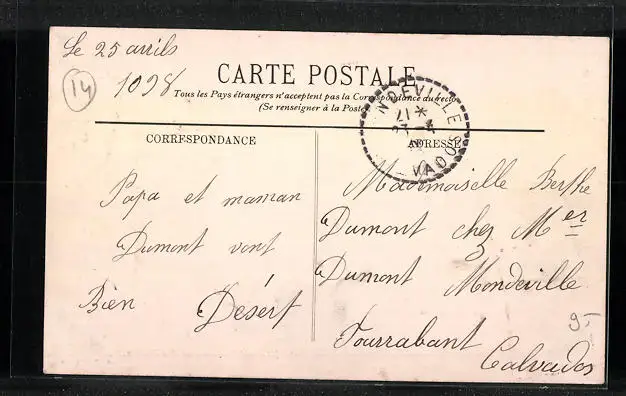 Le 25 avrils
14
1098
CARTE POSTALE
Tous les Pays étrangers n'acceptent pas la Correspondance au recto
(Se renseigner à la Poste)
CORRESPONDANCE
ADRESSE
Papa et maman
Dumont vont
Bien Désert
Mademoiselle Berthe
Dumont chez Mer
Dumont Mondeville
Fourrabant
Calvados
9-